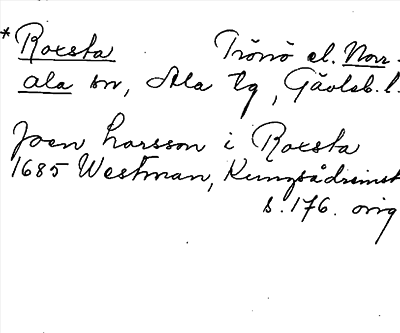 *Roxsta Trönö el. Norr-
ala sn, Ala tg, Gävleb. l.
Joen Larsson i Roxsta
1685 Westman, Kungsådreinst
s. 176. orig